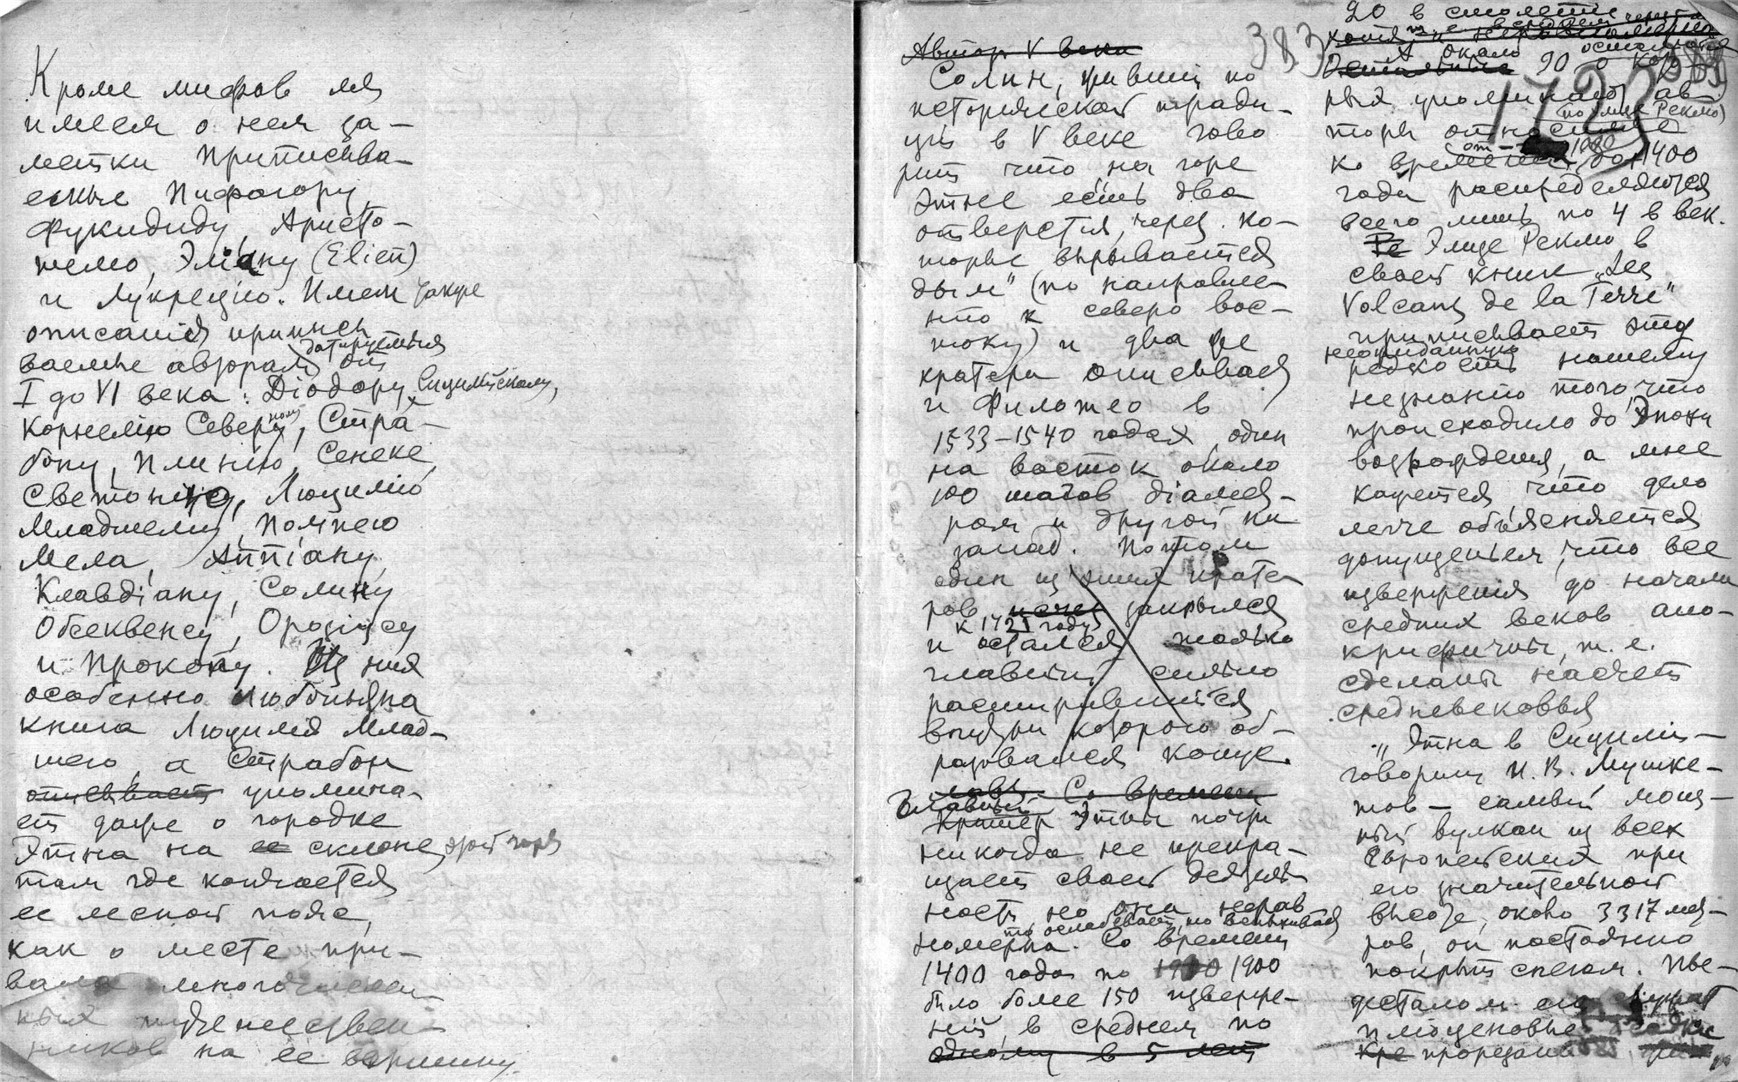 Кроме мифов мы
имеем о нем за-
метки приписыва-
емые Пифагору,
Фукидиду, Аристо-
телю, Эліану (Elien)
и Лукрецию. Имем также
описанія приписы
ваемые авторам датируемыя от
I до VI века: Діодору Сицилійскому,
Корнелію Северу, Стра-
бону, Плинію, Сенеке,
Светонію, Люцилію
Младшему, Помпею
Мела, Аппіану,
Клавдіану, Солину
Обсеквенсу, Орозіусу
и Прокопу. Из них
особенно любопытна
книга Люцилія Млад-
шего, а Страбон
описывает упомина-
ет даже о городке
Этна на ее склоне этой горы
там где кончается
ее лесной пояс,
как о месте при-
вала многочислен-
ных путешествен-
ников на ее вершину.
383
Автор V века
Солин, живший по
исторической тради-
ціи в V веке гово
рит что на горе
Этне есть два
отверстія, через ко-
торые вырывается
дым" (по направле-
нію к северо вос-
току) и два же
кратера описывая
и Филотео в
1533-1540 годах один
на восток около
100 шагов діамет-
ром и другой на
запад. Потом
один из этих крате-
ров исчез закрылся
к 1721 году
и остался только
главный сильно
расширившійся
внутри которого об-
разовался конус.
лавы. Со времени
Главный
Кратер Этны почти
никогда не прекра-
щает своей деятель
ность, но она нерав
то ослабевает, то вспыхивая
номерна. Со времени
1400 года по 1900
было более 150 изверже-
ній, в среднем по
одному в 5 лет
20 в столетіе
хотя и неравномерно
А около остальныя
Остальные 90 о кото
1723
рых упоминают ав-
(по Элизе Реклю)
торы относимые
от 1000
ко времени до 1400
года распределяются
всего лишь по 4 в век.
Ре Элизе Реклю в
своей книге „Les
Volcans de la Terre"
приписывает эту
неожиданную
редкость нашему
незнанію того, что
происходило до Эпохи
возрождения, а мне
кажется что дело
легче объясняется
допущеньем, что все
изверженія до начала
средних веков апо-
крифичны, т. е.
сделаны насчет
средневековья
„Этна в Сициліи -
говорит И. В. Мушке-
тов - самый мощ-
ный вулкан из всех
европейских при
его значительной
высоте, около 3317 мет-
ров, он постоянно
покрыт снегом. Пье-
десталом ему служат
пліоценовые осадки
кре прорезаны